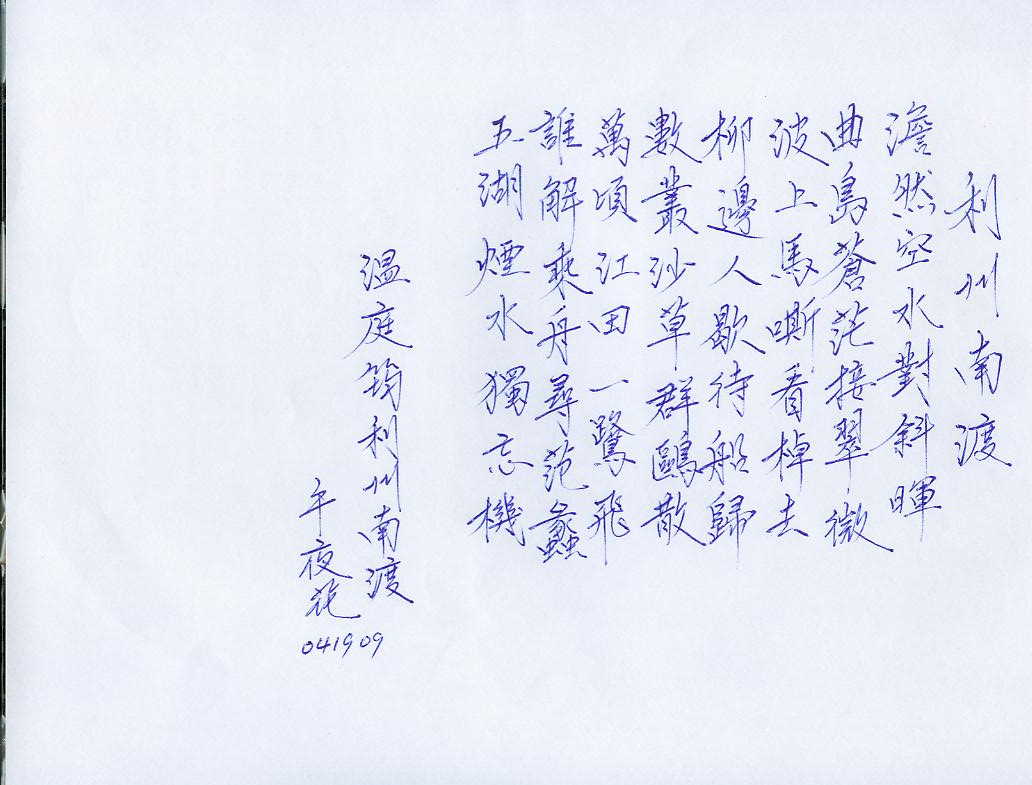 利川南渡
澹然空水對斜暉
曲島蒼茫接翠微
波上馬嘶看棹去
柳邊人歇待船歸
數叢沙草群鷗散
萬頃江田一鷺飛
誰解乘舟尋范蠡
五湖煙水獨忘機
溫庭筠利川南渡
午夜花
041909